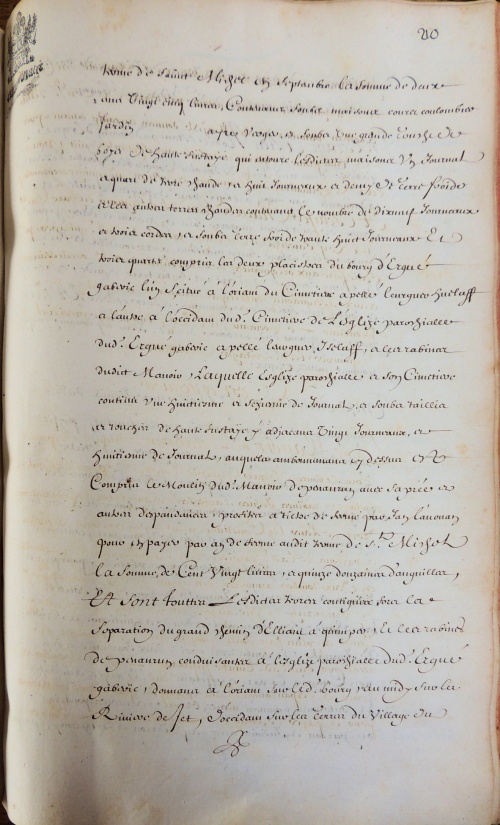 210
terme de Saint Michel en Septambre la somme de deux
cens Vingt cinq livres, Contenant soubz maisons courts coulombier
Jardin a fros Verges, et soubz une grande touche de
boys de haute fustaye qui entoure lesdittes maisons Un Journal
a quart de terre chaude, et huit Journeaux et demy de terre froide
et les autres terres chaudes contenant le nombre de dixneuf Journeaux
et trois cordes, et soubz terre froide trante huict Journeaux Et
trois quarts compris les deux placistres du bourg d'Ergué
gaberic l'un scitué à l'oriant du Cimetiere apellé leurguer
et l'autre à l'occidant dud. Cimetiere de L'Eglize paroissialle
dud. Ergué gaberic apellé leurguer Iselaff, et les rabines
dudict Manoir, Laquelle Esglize paroissialle et son Cimetiere
contient une huictiesme et seziesme de Journal, et soubz taillis
et rocher de haute fustaye y adjacens Vingt Journeaux, et
huictiesme de Journal, auquels
Compris le Moulin dud. Manoir de penanrun avec sa prée et
autres despandances, proffités a tiltre de ferme par Jan
pour en payer par an de ferme audit terme de St. Michel
la somme, de Cent Vingt livres, et quinze douzaines d'anguilles,
Et sont touttes Lesdictes terres contigües sous la
separation du grand chemin d'Elliant à quimper, et les rabines
de penanrun conduisantes à l'esglize paroissialle dud. Ergué
gaberic, donnant à l'oriant sur led. bourg, au midy sur la
Riviere de Jet, d'occidant sur les terres du Village du